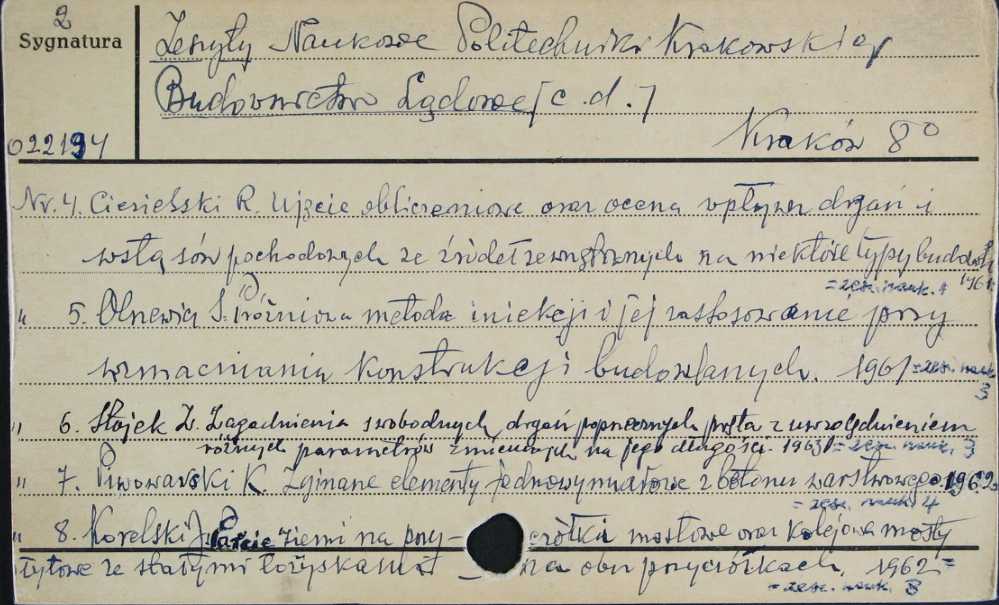 2
Sygnatura
Zeszyty Naukowe Politechniki Krakowskiej
Budownictwo Lądowe [c.d.]
022194
Kraków 8°
Nr. 4. Ciesielski R. Ujęcie obliczeniowe oraz ocena wpływu drgań i
wstrząsów pochodzących ze źródeł zewnętrznych na niektóre typy budowli
1961
= zesz. nauk. 1
" 5. S. Próżniowa metoda iniekcji i jej zastosowanie przy
wzmacnianiu konstrukcji budowlanych. 1961 = zesz. nauk.
3
" 6. Stojek Z. Zagadnienia swobodnych drgań poprzecznych pręta z uwzględnieniem
różnych parametrów zmiennych na jego długości. 1963 = zesz. nauk. 3
" 7. Piwowarski K. Zginane elementy jednowymiarowe z betonu warstwowego. 1962
= zesz. nauk. 4
" 8. Korelski J. Parcie ziemi na przy- czółki mostowe oraz kolejowe mosty
płytowe ze stałymi łożyskami na obu przyczółkach. 1962 =
= zesz. nauk. 3